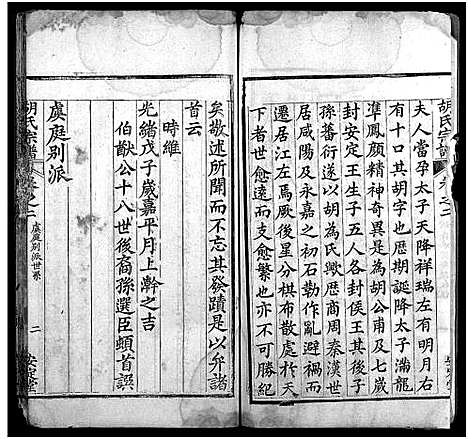 胡氏宗譜
卷之二
夫人當孕太子天降祥瑞左有明月右
有十口其胡字也歷期誕降太子滿龍
準鳳顏精神奇異是為胡公甫及七歲
封安定王生子五人各封侯王其後子
孫蕃衍遂以胡為氏歟歷商周秦漢世
居咸陽及永嘉之初石勒作亂避禍而
遷居江左焉厥後星分棋布散處於天
下者世愈遠而支愈繁也亦不可勝紀
矣敬述所聞而不忘其發蹟是以弁諸
首云
時維
光緒戊子歲嘉平月上澣之吉
伯猷公十八世後裔孫選臣頓首譔
虞庭別派
胡氏宗譜
卷之二
虞庭別派世系
二
安定堂